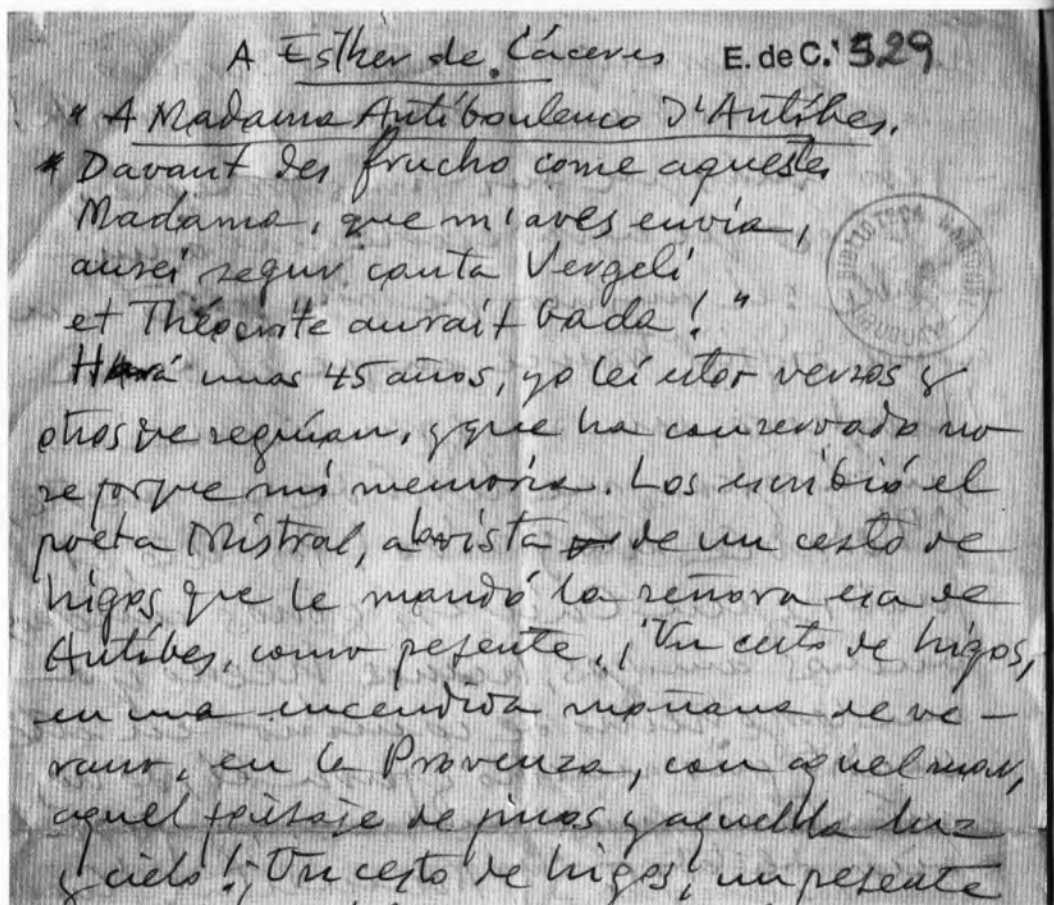 A Esther de Cáceres E. de C. 529
" A Madama Antíboulenco d'Antíbes.
" Davant des frucho come aquestes
Madama, que m'aves envia,
aurei segur canta Vergeli
et Théocrite aurait bada! "
Hará unas 45 años, yo leí estos versos y
otros que seguían, y que ha conservado no
se porque mi memoria. Los escribió el
poeta Mistral, a la vista de un cesto de
higos que le mandó la señora esa de
Antibes, como pesente. ¡Un cesto de higos,
en una encendida mañana de ve-
rano, en la Provenza, con aquel mar,
aquel paisaje de pinos y aquella luz
y cielo! ¡Un cesto de higos, un pesente
BIBLIOTECA NACIONAL
URUGUAY